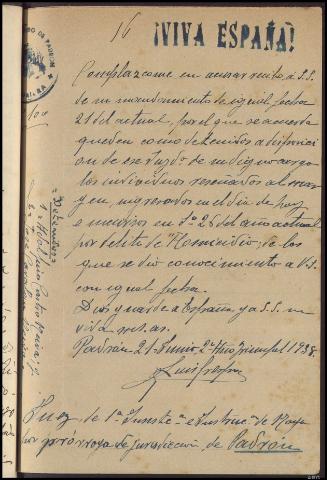 16
¡VIVA ESPAÑA!
Complazcome en acusar recibo, á S.S.
de su mandamiento de igual fecha
21 del actual, por el que se acuerda
queden como detenidos a disposición
de ese Juzgº de su digno cargo
los individuos reseñados al margen,
ingresados en el día de hoy
nº 25 del año actual
por delito de "Homicidio", de los
que se dio conocimiento á V.S.
con igual fecha.
Dios guarde a España y a S.S. m
vida
Padrón 21 Junio, 2º Año Triunfal 1938.
Luis
Juez, de 1ª Instª e Instrucº de Noya
por prórroga de jurisdicción, de Padrón